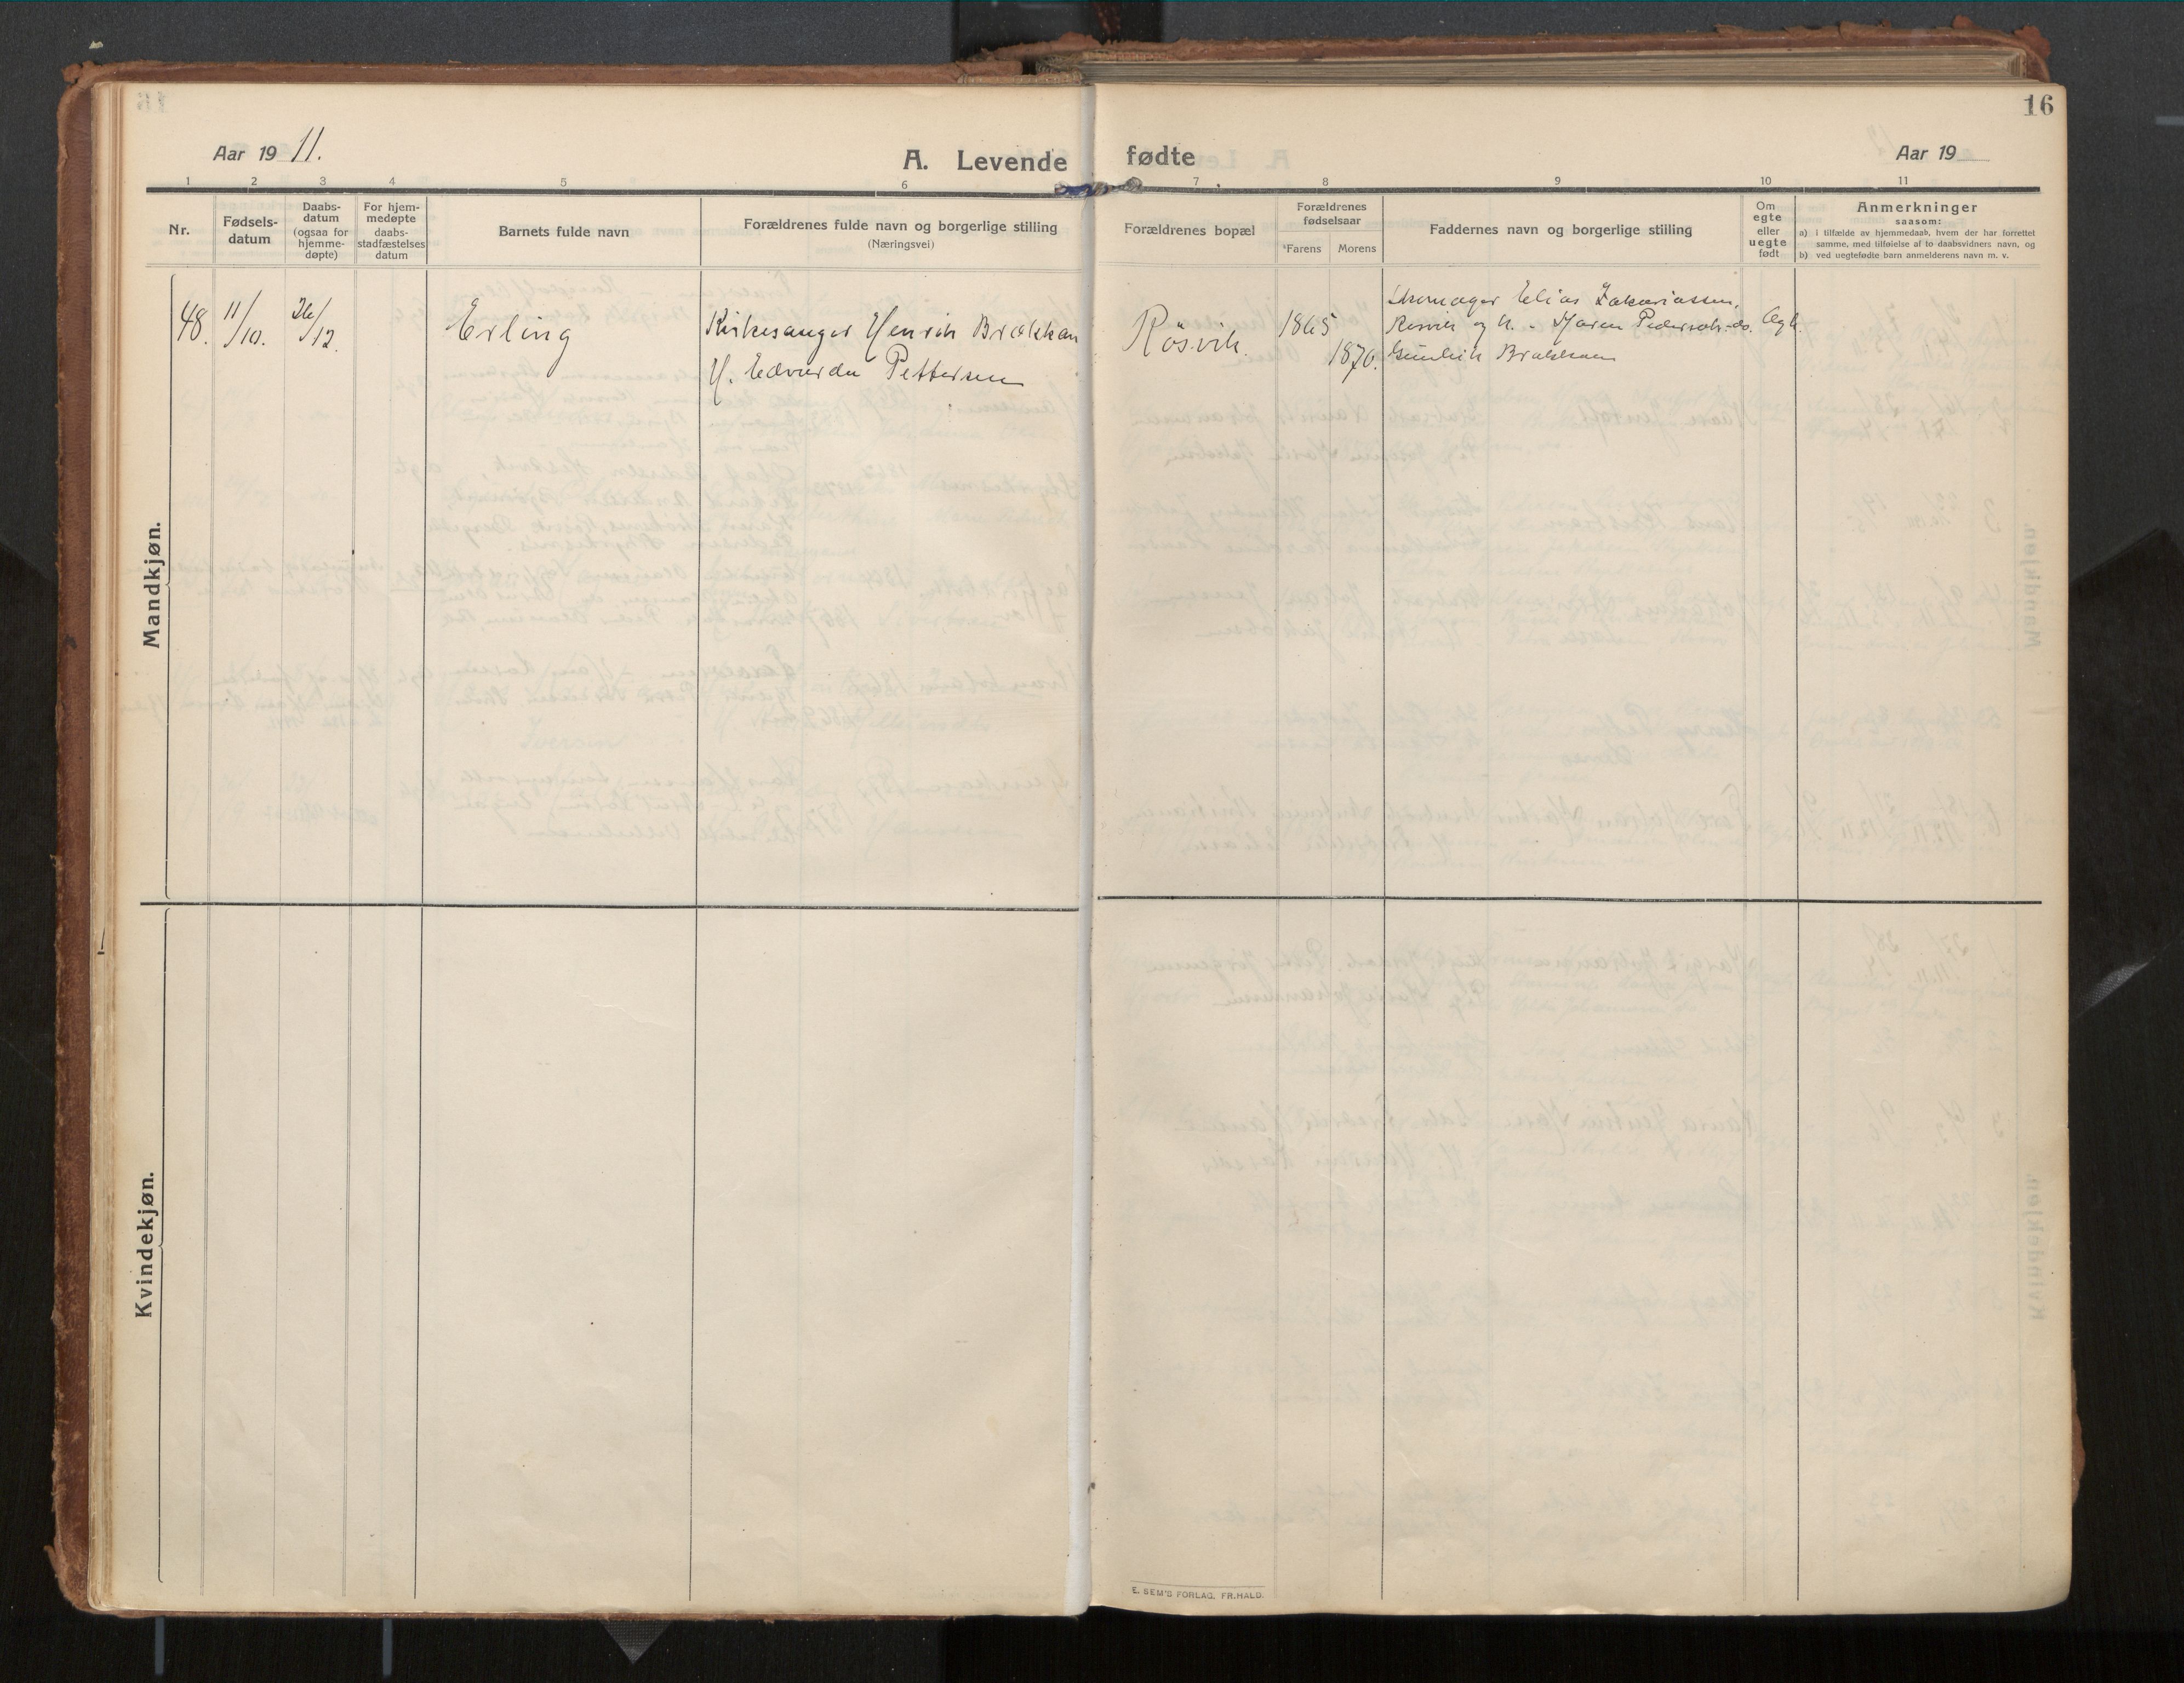 16
Aar 1911.
A. Levende fødte
Aar 19
1 2 3 4 5 6 7 8 9 10 11
Nr.
Fødsels-
datum
Daabs-
datum
(ogsaa for
hjemme-
døpte)
For hjem-
medøpte
daabs-
stadfæstelses
datum
Barnets fulde navn
Forældrenes fulde navn og borgerlige stilling
(Næringsvei)
Forældrenes bopæl
Forældrenes
fødselsaar
Farens Morens
Faddernes navn og borgerlige stilling
Om
egte
eller
uegte
født
Anmerkninger
saasom:
a) i tilfælde av hjemmedaab, hvem der har forrettet
samme, med tilføielse af to daabsvidners navn, og
b) ved uegtefødte barn anmelderens navn m. v.
Mandkjøn.
48. 11/10. 26/12. Erling
Kirkesanger Henrik Brækkan
H. Edvarda Pettersen
Røsvik.
1865
1870.
Skomager Elias Zakariassen,
Røsvik og h. - Maren Pedersen
Brækkan
Ægt.
Kvindekjøn.
E. SEM'S FORLAG. FR.HALD.